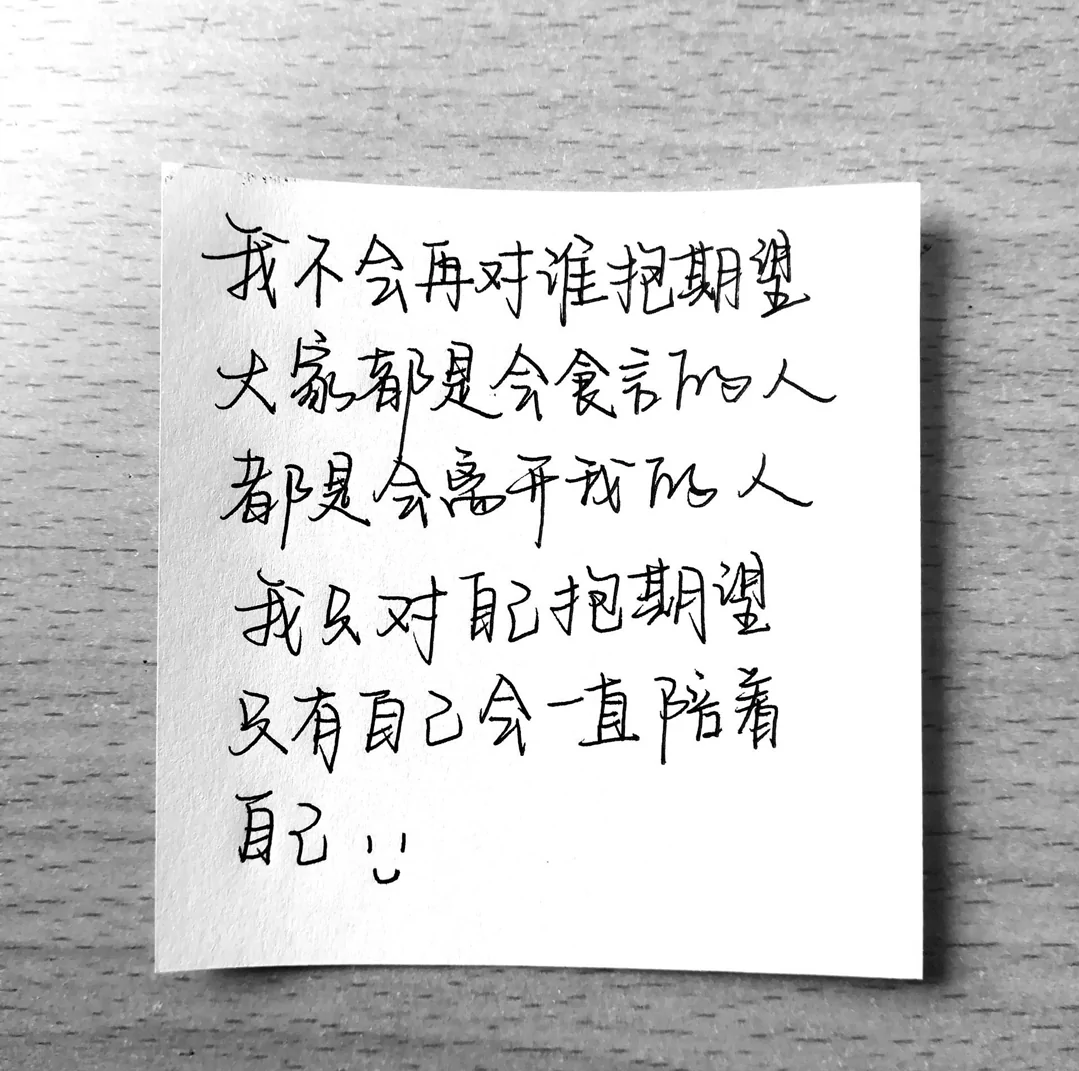 我不会再对谁抱期望
大家都是会食言的人
都是会离开我的人
我只对自己抱期望
只有自己会一直陪着
自己